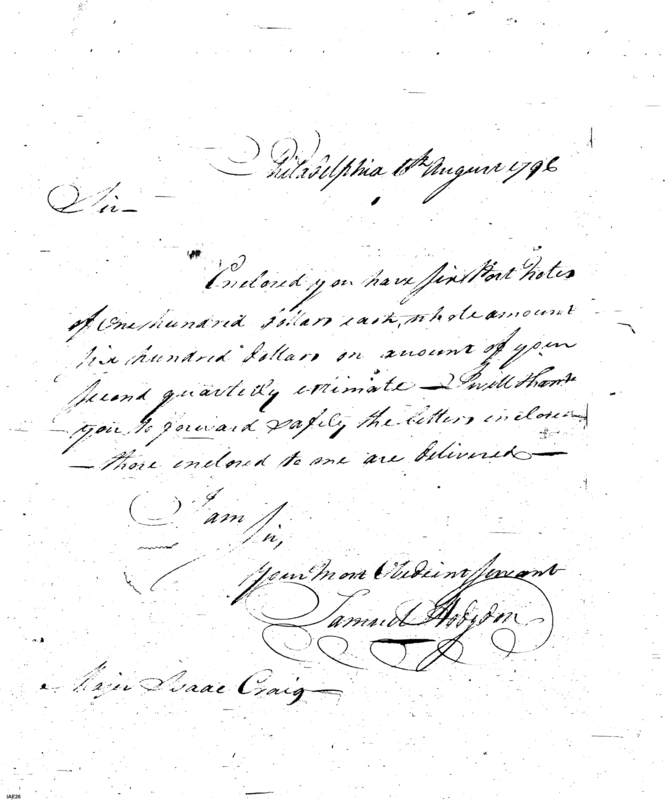 Philadelphia 8th August 1796
Sir
Enclosed you have six Post Notes
of One hundred dollars each, whole amount
six hundred dollars on amount of your
second quarterly estimate — I will thank
you to forward safely the letters enclosed
— those enclosed to me are delivered —
I am
Sir,
your Most Obedient Servant
Samuel Hodgdon
Major Isaac Craig —
IAE26